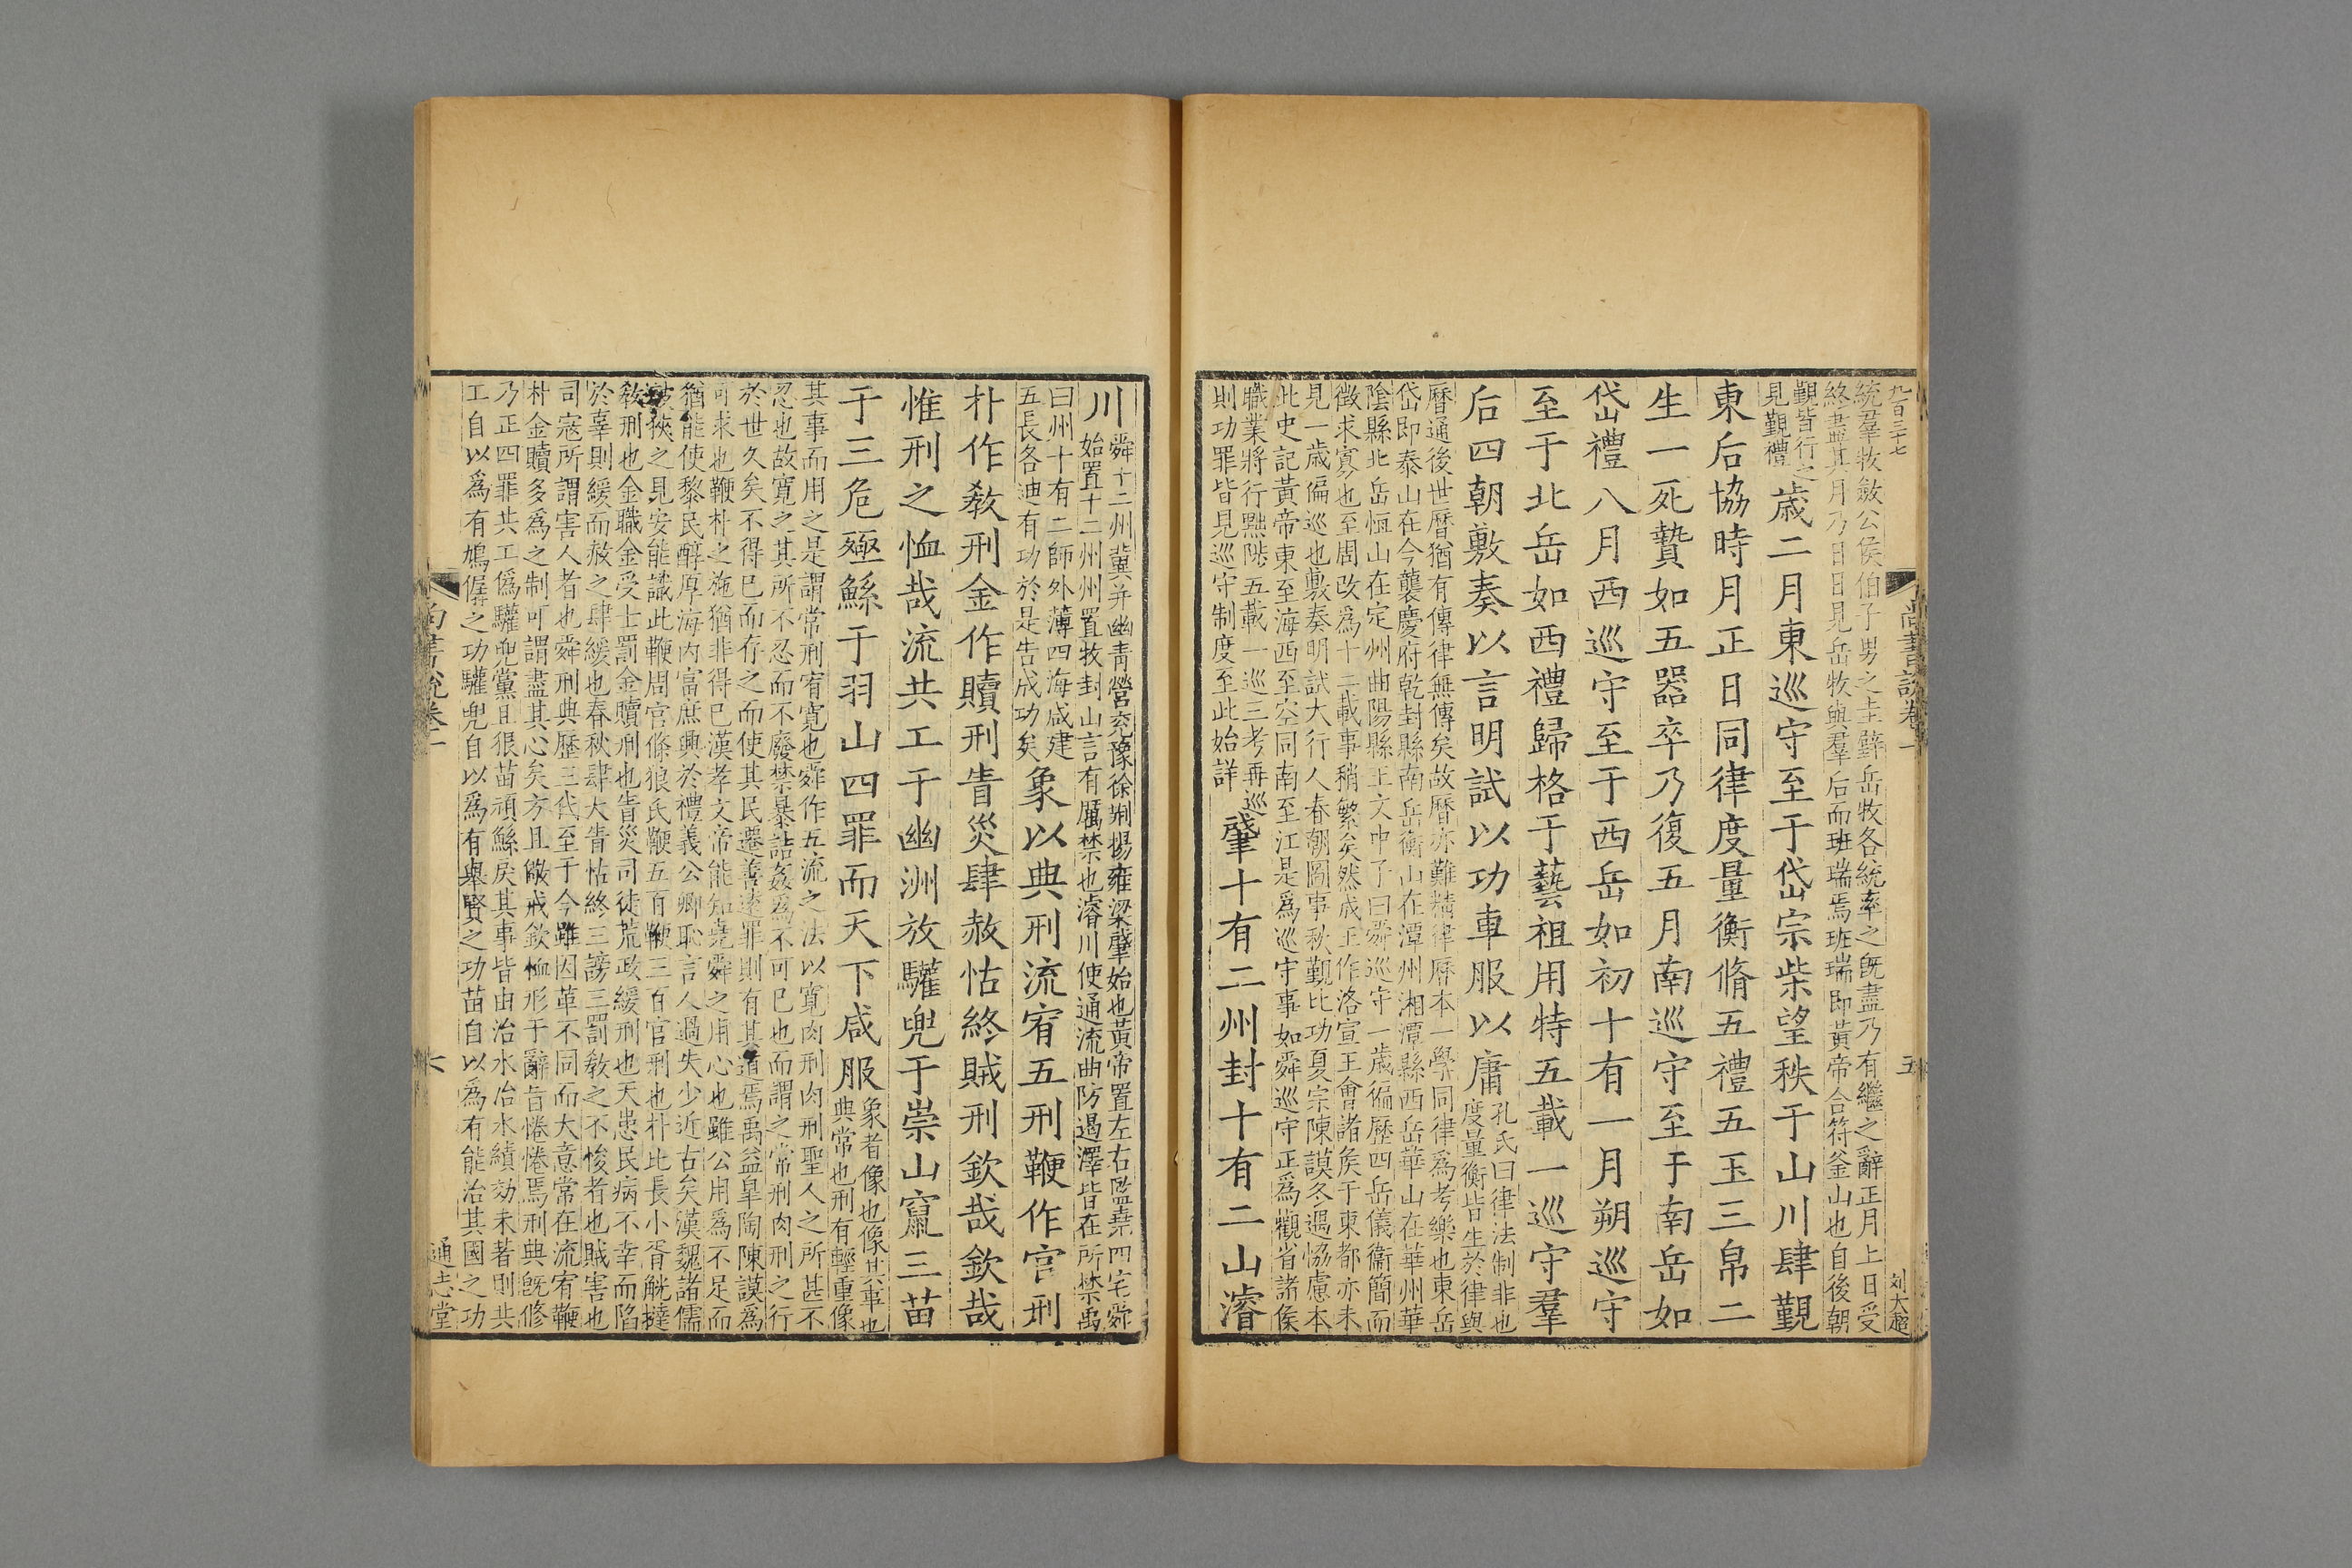 九百三十七
尚書說卷一
五
刘大超
統羣牧斂公侯伯子男之圭璧岳牧各統率之旣盡乃有繼之辭正月上日受
終盡其月乃日日見岳牧與羣后而班瑞焉班瑞即黃帝合符釜山也自後朝
覲皆行之
見覲禮
歲二月東巡守至于岱宗柴望秩于山川肆覲
東后協時月正日同律度量衡脩五禮五玉三帛二
生一死贄如五器卒乃復五月南巡守至于南岳如
岱禮八月西巡守至于西岳如初十有一月朔巡守
至于北岳如西禮歸格于藝祖用特五載一巡守羣
后四朝敷奏以言明試以功車服以庸
孔氏曰律法制非也
度量衡皆生於律與
曆通後世曆猶有傳律無傳矣故曆亦難精律曆本一學同律爲考樂也東岳
岱即泰山在今襲慶府乾封縣南岳衡山在潭州湘潭縣西岳華山在華州華
陰縣北岳恆山在定州曲陽縣王文中子曰舜巡守一歲徧歷四岳儀衞簡而
徵求寡也至周改爲十二載事稍繁矣然成王作洛宣王會諸矦于東都亦未
見一歲徧巡也敷奏明試大行人春朝圖事秋覲比功夏宗陳謨冬遇恊慮本
此史記黃帝東至海西至空同南至江是爲巡守事如舜巡守正爲觀省諸矦
職業將行黜陟五載一巡三考再巡
則功罪皆見巡守制度至此始詳
肇十有二州封十有二山濬
川
舜十二州冀并幽靑營兖豫徐荆揚雍梁肇始也黃帝置左右監堯四宅舜
始置十二州州置牧封山言有厲禁也濬川使通流曲防遏澤皆在所禁禹
曰州十有二師外薄四海咸建
五長各迪有功於是告成功矣
象以典刑流宥五刑鞭作官刑
朴作敎刑金作贖刑眚災肆赦怙終賊刑欽哉欽哉
惟刑之恤哉流共工于幽洲放驩兜于崇山竄三苗
于三危殛鯀于羽山四罪而天下咸服
象者像也像其事也
典常也刑有輕重像
其事而用之是謂常刑宥寬也舜作五流之法以寬肉刑肉刑聖人之所甚不
忍也故寬之其所不忍而不廢禁暴詰姦爲不可已也而謂之常刑肉刑之行
於世久矣不得已而存之而使其民遷善遠罪則有其道焉禹益臯陶陳謨爲
可求也鞭朴之施猶非得已漢孝文帝能知堯舜之用心也雖公用爲不足而
猶能使黎民醇厚海內富庶興於禮義公卿恥言人過失少近古矣漢魏諸儒
狹之見安能識此鞭周官條狼氏鞭五百鞭三百官刑也朴比長小胥觥撻
敎刑也金職金受士罰金贖刑也眚災司徒荒政緩刑也天患民病不幸而陷
於辜則緩而赦之肆緩也春秋肆大眚怙終三謗三罰敎之不悛者也賊害也
司寇所謂害人者也舜刑典歷三代至于今雖因革不同而大意常在流宥鞭
朴金贖多爲之制可謂盡其心矣方且儆戒欽恤形于辭旨惓惓焉刑典旣修
乃正四罪共工僞驩兜黨且狠苗頑鯀戾其事皆由治水治水績効未著則共
工自以爲有鳩僝之功驩兜自以爲有舉賢之功苗自以爲有能治其國之功
尚書說卷一
六
通志堂